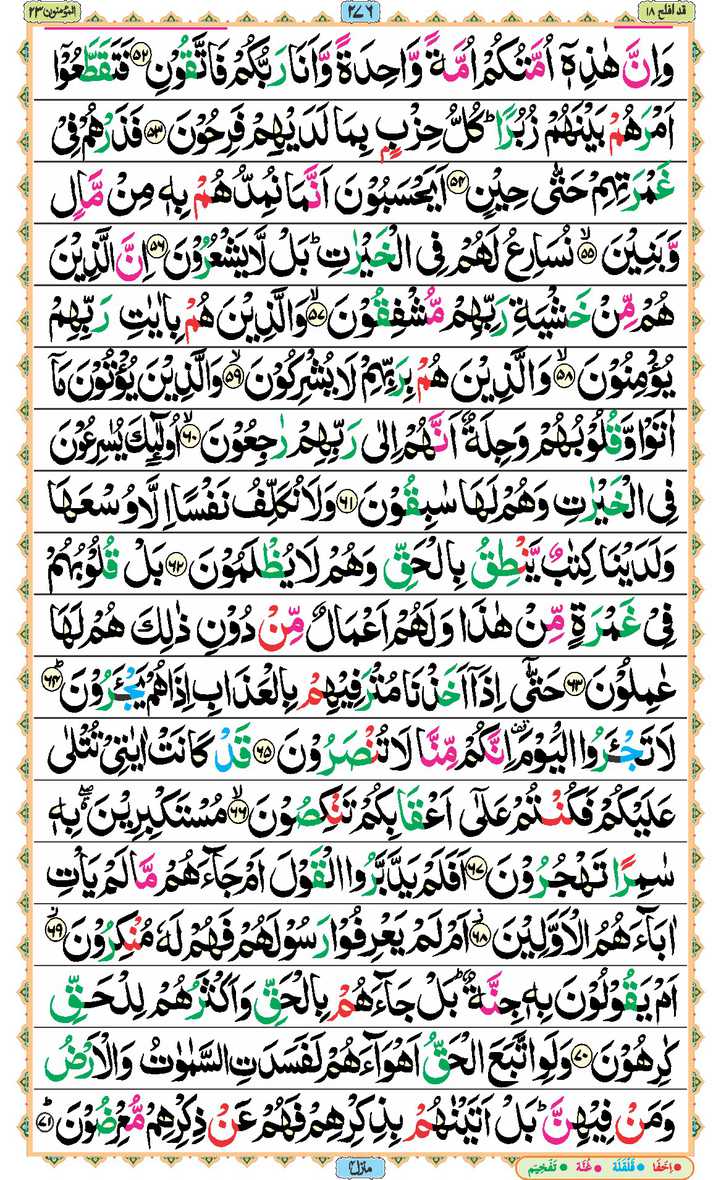 قد افلح ١٨
٢٧٦
المؤمنون ٢٣
وَاِنَّ هٰذِهٖۤ اُمَّتُكُمْ اُمَّةً وَّاحِدَةً وَّاَنَا رَبُّكُمْ فَاتَّقُوْنِ ۝٥٢ فَتَقَطَّعُوْۤا
اَمْرَهُمْ بَيْنَهُمْ زُبُرًا ؕ كُلُّ حِزْبٍۭ بِمَا لَدَيْهِمْ فَرِحُوْنَ ۝٥٣ فَذَرْهُمْ فِيْ
غَمْرَتِهِمْ حَتّٰى حِيْنٍ ۝٥٤ اَيَحْسَبُوْنَ اَنَّمَا نُمِدُّهُمْ بِهٖ مِنْ مَّالٍ
وَّبَنِيْنَ ۝٥٥ۙ نُسَارِعُ لَهُمْ فِي الْخَيْرٰتِ ؕ بَلْ لَّا يَشْعُرُوْنَ ۝٥٦ اِنَّ الَّذِيْنَ
هُمْ مِّنْ خَشْيَةِ رَبِّهِمْ مُّشْفِقُوْنَ ۝٥٧ۙ وَالَّذِيْنَ هُمْ بِاٰيٰتِ رَبِّهِمْ
يُؤْمِنُوْنَ ۝٥٨ۙ وَالَّذِيْنَ هُمْ بِرَبِّهِمْ لَا يُشْرِكُوْنَ ۝٥٩ۙ وَالَّذِيْنَ يُؤْتُوْنَ مَاۤ
اٰتَوْا وَّقُلُوْبُهُمْ وَجِلَةٌ اَنَّهُمْ اِلٰى رَبِّهِمْ رٰجِعُوْنَ ۝٦٠ۙ اُولٰٓئِكَ يُسٰرِعُوْنَ
فِي الْخَيْرٰتِ وَهُمْ لَهَا سٰبِقُوْنَ ۝٦١ وَلَا نُكَلِّفُ نَفْسًا اِلَّا وُسْعَهَا
وَلَدَيْنَا كِتٰبٌ يَّنْطِقُ بِالْحَقِّ وَهُمْ لَا يُظْلَمُوْنَ ۝٦٢ بَلْ قُلُوْبُهُمْ
فِيْ غَمْرَةٍ مِّنْ هٰذَا وَلَهُمْ اَعْمَالٌ مِّنْ دُوْنِ ذٰلِكَ هُمْ لَهَا
عٰمِلُوْنَ ۝٦٣ حَتّٰۤى اِذَاۤ اَخَذْنَا مُتْرَفِيْهِمْ بِالْعَذَابِ اِذَا هُمْ يَجْـَٔرُوْنَ ۝٦٤ؕ
لَا تَجْـَٔرُوا الْيَوْمَ اِنَّكُمْ مِّنَّا لَا تُنْصَرُوْنَ ۝٦٥ قَدْ كَانَتْ اٰيٰتِيْ تُتْلٰى
عَلَيْكُمْ فَكُنْتُمْ عَلٰۤى اَعْقَابِكُمْ تَنْكِصُوْنَ ۝٦٦ۙ مُسْتَكْبِرِيْنَ ۖ بِهٖ
سٰمِرًا تَهْجُرُوْنَ ۝٦٧ اَفَلَمْ يَدَّبَّرُوا الْقَوْلَ اَمْ جَآءَهُمْ مَّا لَمْ يَاْتِ
اٰبَآءَهُمُ الْاَوَّلِيْنَ ۝٦٨ؗ اَمْ لَمْ يَعْرِفُوْا رَسُوْلَهُمْ فَهُمْ لَهٗ مُنْكِرُوْنَ ۝٦٩ؗ
اَمْ يَقُوْلُوْنَ بِهٖ جِنَّةٌ ؕ بَلْ جَآءَهُمْ بِالْحَقِّ وَاَكْثَرُهُمْ لِلْحَقِّ
كٰرِهُوْنَ ۝٧٠ وَلَوِ اتَّبَعَ الْحَقُّ اَهْوَآءَهُمْ لَفَسَدَتِ السَّمٰوٰتُ وَالْاَرْضُ
وَمَنْ فِيْهِنَّ ؕ بَلْ اَتَيْنٰهُمْ بِذِكْرِهِمْ فَهُمْ عَنْ ذِكْرِهِمْ مُّعْرِضُوْنَ ۝٧١ؕ
منزل ٤
اخفا قلقلة غنة تفخيم